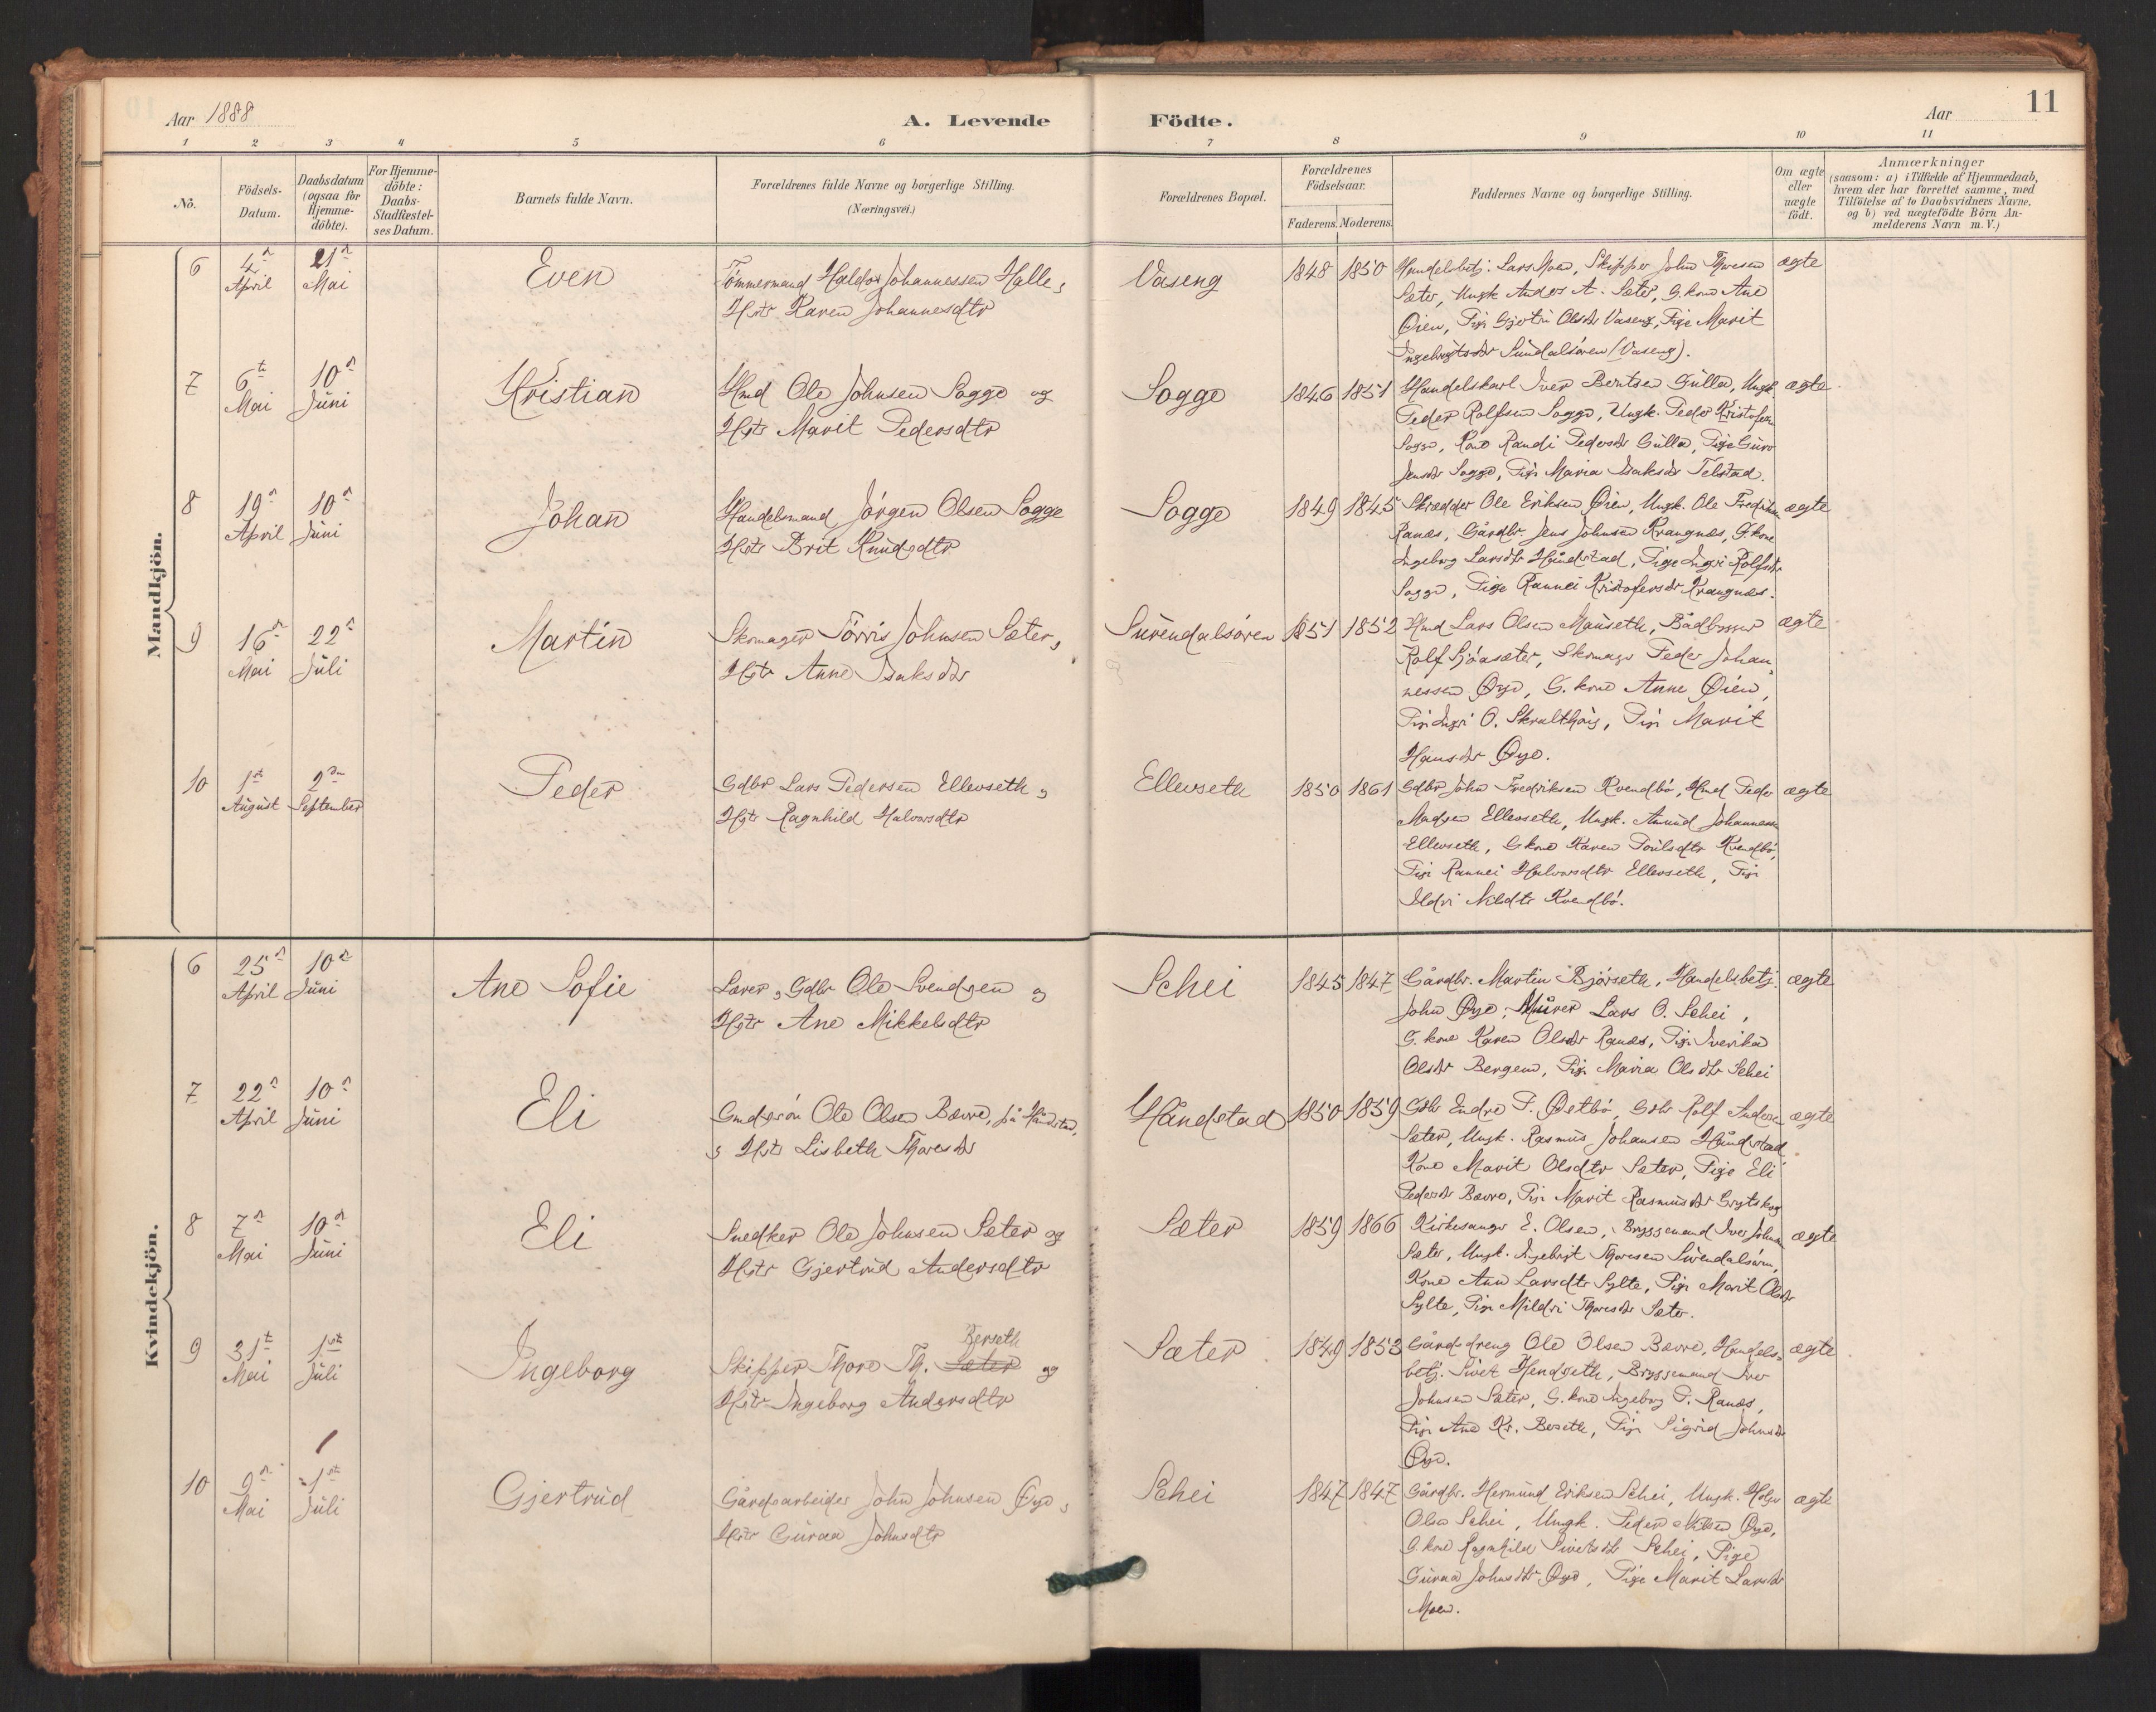 Aar 1888
A. Levende Födte.
Aar
11
1 2 3 4 5 6 7 8 9 10 11
No.
Födsels-Datum.
Daabsdatum (ogsaa for Hjemme-döbte).
For Hjemme-döbte: Daabs-Stadfæstel-ses Datum.
Barnets fulde Navn.
Forældrenes fulde Navne og borgerlige Stilling.
(Næringsvei.)
Forældrenes Bopæl.
Forældrenes Födselsaar.
Faderens. Moderens.
Faddernes Navne og borgerlige Stilling.
Om ægte eller uægte födt.
Anmærkninger
(saasom: a) i Tilfælde af Hjemmedaab,
hvem der har forrettet samme, med
Tilföielse af to Daabsvidners Navne,
og b) ved uægtefödte Börn An-
melderens Navn m. V.)
Mandkjön.
6 4de April 21de Mai Even
Tömmermand Haldor Johannessen Halle,
Hstr Karen Johannesdtr
Vaseng 1848 1850
Handelsbetj. Lars Moen, Skipper John Thoresen
Sæter, Ungk Anders A. Sæter, G. kone Ane
Øien, Pige Gjertru Olsdtr Vaseng, Pige Marit
Ingebrigtsdtr Surendalsören (Vaseng).
ægte
7 6te Mai 10de Juni Kristian
Hmd Ole Johnsen Sogge og
Hstr Marit Pedersdtr
Sogge 1846 1851
Handelskarl Iver Berntsen Gulla, Ungk.
Peder Rolfsen Sogge, Ungk. Peder Kristofersen
Sogge, Kone Randi Pedersdtr Gulla, Pige Guro
Jensdtr Sogge, Pige Maria Isaksdtr Telstad.
ægte
8 19de April 10de Juni Johan
Handelsmand Jörgen Olsen Sogge
Hstr Brit Knudsdtr
Sogge 1849 1845
Skrædder Ole Eriksen Øien, Ungk. Ole Fredriksen
Ranæs, Gårdbr. Jens Johnsen Krangnæs, G. kone
Ingeborg Larsdtr Håndstad, Pige Ingri Rolfsdtr
Sogge, Pige Rannei Kristofersdtr Krangnæs.
ægte
9 16de Mai 22de Juli Martin
Skomager Törris Johnsen Sæter,
Hstr Anne Isaksdtr
Surendalsören 1851 1852
Hmd Lars Olsen Mauseth, Bådbygger
Rolf Sjöasæter, Skomager Peder Johan-
nessen Øye, G. kone Anne Øien,
Pige Ingri O. Skralthaug, Pige Marit
Hansdtr Øye.
ægte
10 1ste August 2den September Peder
Gdbr Lars Pedersen Ellevseth,
Hstr Ragnhild Halvorsdtr
Ellevseth 1850 1861
Gdbr John Fredriksen Kvendbö, Hmd Peder
Madsen Ellevseth, Ungk. Amund Johannessen
Ellevseth, G kone Karen Poulsdtr Kvendbö,
Pige Rannei Halvorsdtr Ellevseth, Pige
Ildri Nilsdtr Kvendbö.
ægte
Kvindekjön.
6 25de April 10de Juni Ane Sofie
Lærer, Gdbr Ole Svendsen og
Hstr Ane Mikkelsdtr
Schei 1845 1847
Gårdbr. Martin Björseth, Handelsbetj.
John Øye, Murer Lars O. Schei,
G. kone Karen Olsdtr Ranæs, Pige Iverika
Olsdtr Bergem, Pige Maria Olsdtr Schei
ægte
7 22de April 10de Juni Eli
Gmdssön Ole Olsen Bævre, på Håndstad,
Hstr Lisbeth Thoresdtr
Håndstad 1850 1859
Gdbr Endre P. Østbö, Gdbr Rolf Andersen
Sæter, Ungk. Rasmus Johansen Håndstad
Kone Marit Olsdtr Sæter, Pige Eli
Pedersdtr Bævre, Pige Marit Rasmusdtr Grytskog
ægte
8 7de Mai 10de Juni Eli
Snedker Ole Johnsen Sæter og
Hstr Gjertrud Andersdtr
Sæter 1859 1866
Kirkesanger E. Olsen, Bryggemand Iver Johnsen
Sæter, Ungk. Ingebrigt Thoresen Surendalsören,
Kone Ane Larsdtr Sylte, Pige Marit Olsdtr
Sylte, Pige Mildri Thoresdtr Sæter.
ægte
9 31te Mai 1ste Juli Ingeborg
Berseth
Skipper Thore Th. Sæter og
Hstr Ingeborg Andersdtr
Sæter 1849 1853
Gårddreng Ole Olsen Bævre, Handels-
betj. Sivert Hendseth, Bryggemand Iver
Johnsen Sæter, G. kone Ingeborg P. Ranæs,
Pige Ane Kr. Berseth, Pige Sigrid Johnsdtr
Øye.
ægte
10 9de Mai 1ste Juli Gjertrud
Gårdsarbeider John Johnsen Øye,
Hstr Guroa Johnsdtr
Schei 1847 1847
Gårdbr. Hermund Eriksen Schei, Ungk. Holger
Olsen Schei, Ungk. Peder Nilsen Øye,
G. kone Ragnhild Sivertsdtr Schei, Pige
Guroa Johnsdtr Øye, Pige Marit Larsdtr
Moen.
ægte